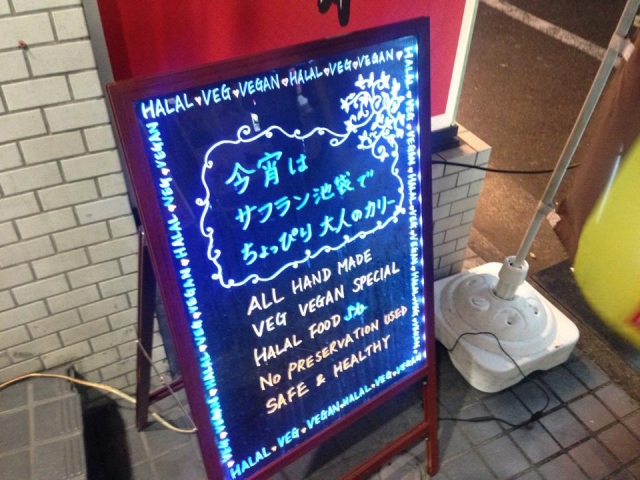 HALAL♥VEG♥VEGAN♥HALAL♥VEG♥VEGAN♥
今宵は
サフラン池袋で
ちょっぴり大人のカリー
ALL HAND MADE
VEG VEGAN SPECIAL
HALAL FOOD
NO PRESERVATION USED
SAFE & HEALTHY
HALAL♥VEG♥VEGAN♥HALAL♥VEG♥VEGAN